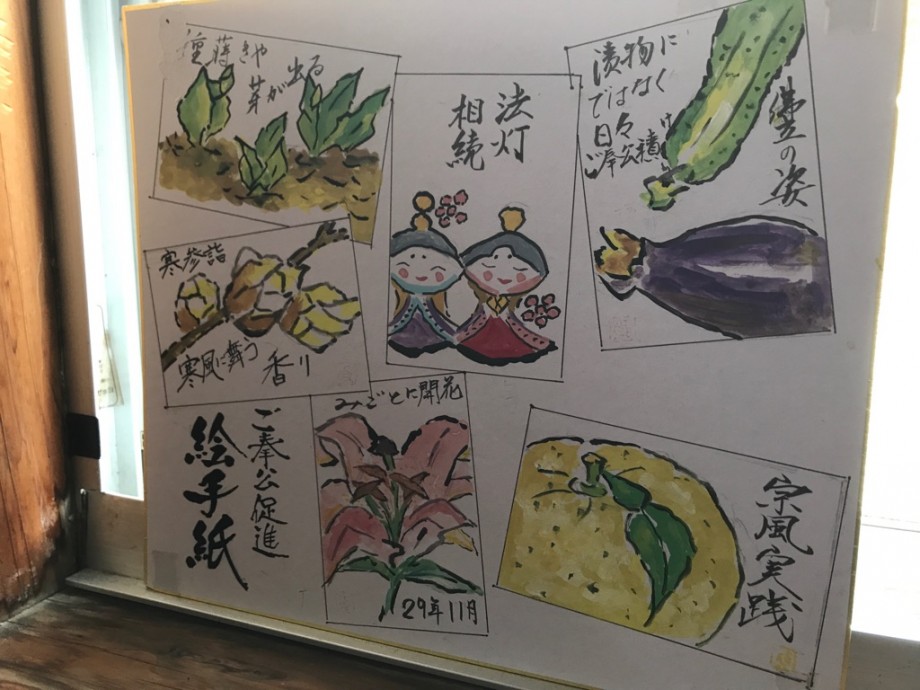 種蒔きや
芽が出る
法灯
相続
漬物に
ではなく
日々
ご奉公積け
豊の姿
寒参詣
寒風に舞う
香り
みごとに開花
29年11月
ご奉公促進
絵手紙
宗風実践